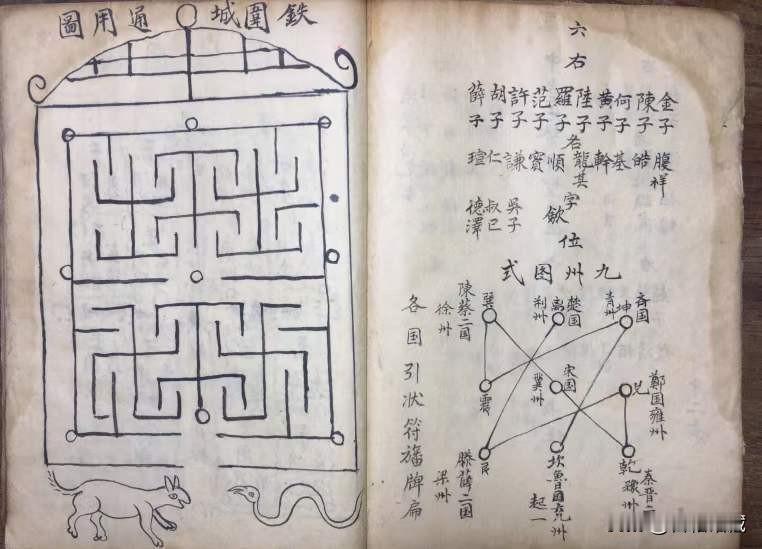 鉄圍城通用圖
六右
名字欽位
金子腹祥
陳子皓
何子基
黃子幹
陸子龍其
羅子順
范子寳
許子謙
胡子仁
薛子瑄
吳子
叔已
德澤
九州图式
斉国
坤
青州
楚国
離
荆州
巽
陳蔡二国
徐州
鄭国雍州
兌
宋国
冀州
震
秦晉二
乾
豫州
坎魯国兗州
起一
艮
滕薛二国
梁州
各国引状符旛牌扁